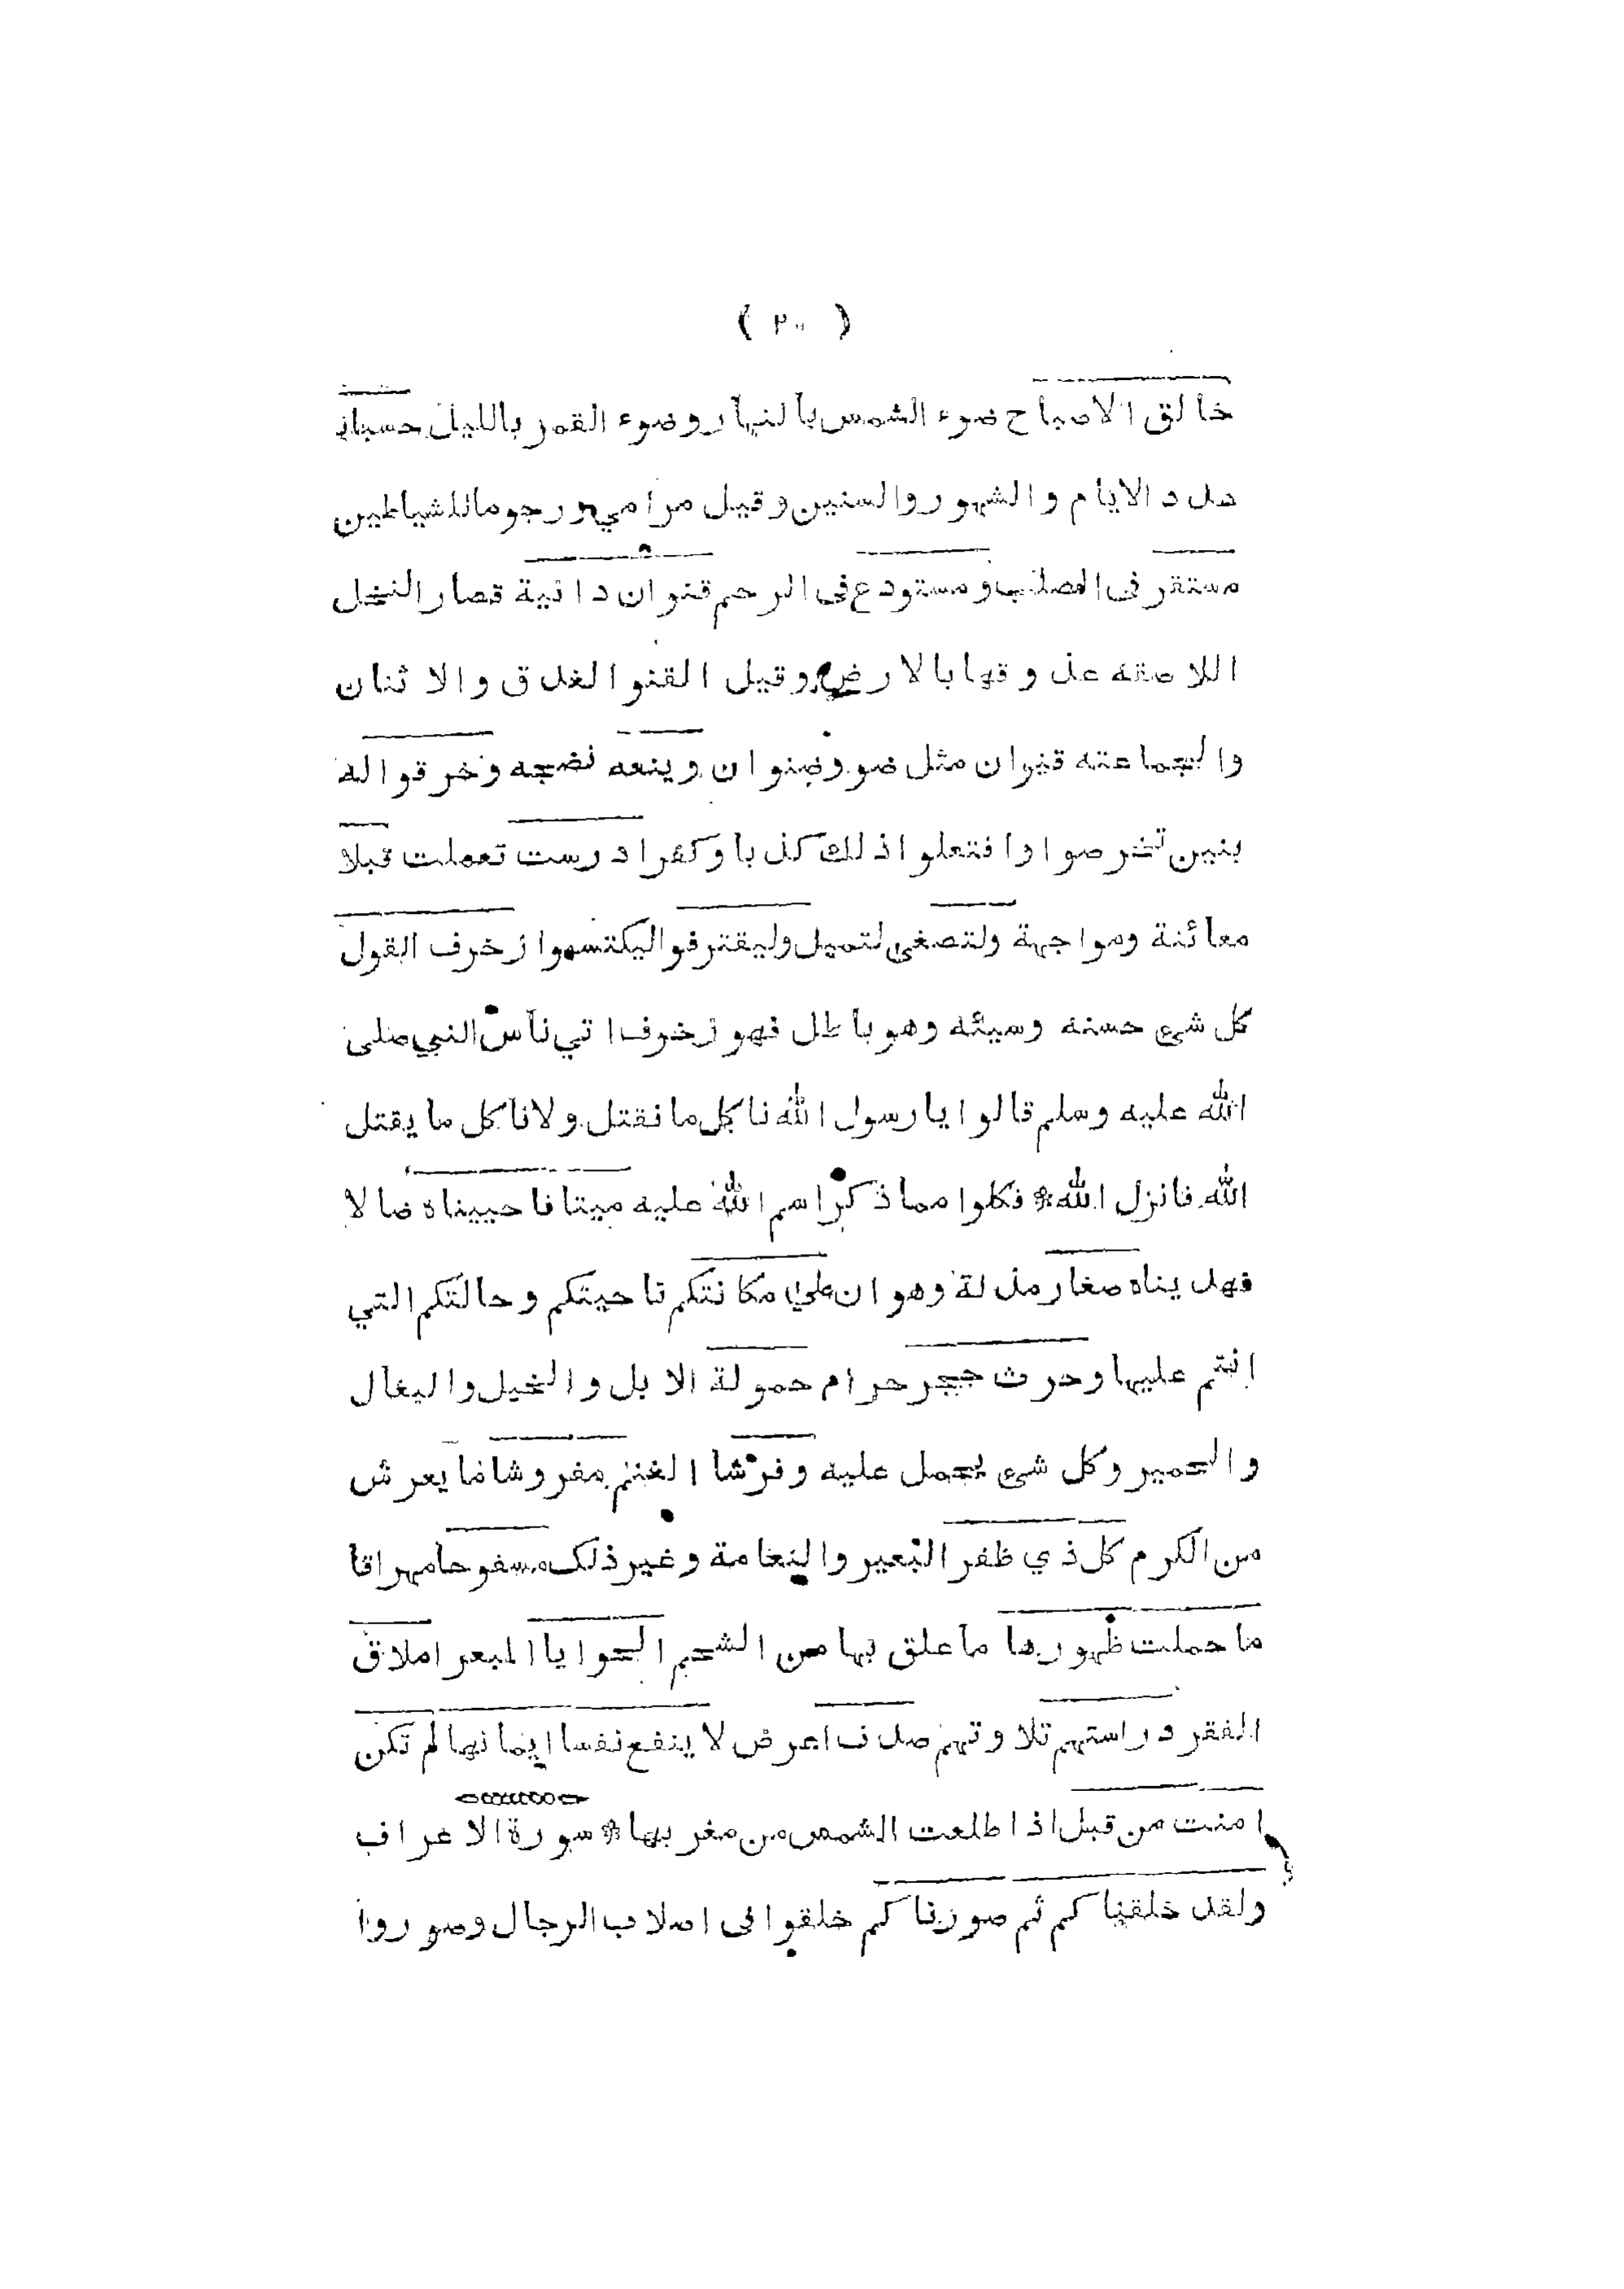 ( ٢٠ )
خالق الاصباح ضوء الشمس بالنهار وضوء القمر بالليل حسبانا
عدد الايام والشهور والسنين وقيل مرامي ورجوما للشياطين
مستقر فى الصلب ومستودع فى الرحم قنوان دانية قصار النخل
اللاصقه عذوقها بالارض وقيل القنو العذق والاثنان
والجماعته قنوان مثل صنو وصنوان وينعه نضجه وخرقوا له
بنين تخرصوا وافتعلوا ذلك كذبا وكفرا درست تعملت قبلا
معائنة ومواجهة ولتصغى لتميل وليقترفوا ليكتسبوا زخرف القول
كل شئ حسنه وسيئه وهو باطل فهو زخرف اتي ناس النبي صلى
الله عليه وسلم قالوا يا رسول الله ناكل ما نقتل ولا ناكل ما يقتل
الله فانزل الله * فكلوا مما ذكر اسم الله عليه ميتا فاحييناه ضالا
فهديناه صغار مذلة وهوان علي مكانتكم ناحيتكم وحالتكم التي
انتم عليها وحرث حجر حرام حمولة الابل والخيل والبغال
والحمير وكل شئ يحمل عليه وفرشا الغنم مفروشا ما يعرش
من الكرم كل ذي ظفر البعير والنعامة وغير ذلك مسفوحا مهراقا
ما حملت ظهورها ما علق بها من الشحم الحوايا المبعر املاق
الفقر دراستهم تلاوتهم صدف اعرض لا ينفع نفسا ايمانها لم تكن
امنت من قبل اذا طلعت الشمس من مغربها * سورة الاعراف
ولقد خلقناكم ثم صورناكم خلقوا فى اصلاب الرجال وصوروا